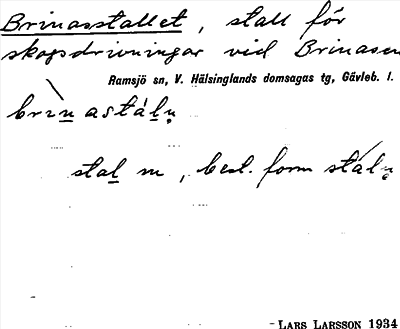 Brinasstallet, stall för
skogsdrivningar vid Brinasen
Ramsjö sn, V. Hälsinglands domsagas tg, Gävleb. l.
brìnastáln̥
stal m, best. form stáln̥
LARS LARSSON 1934